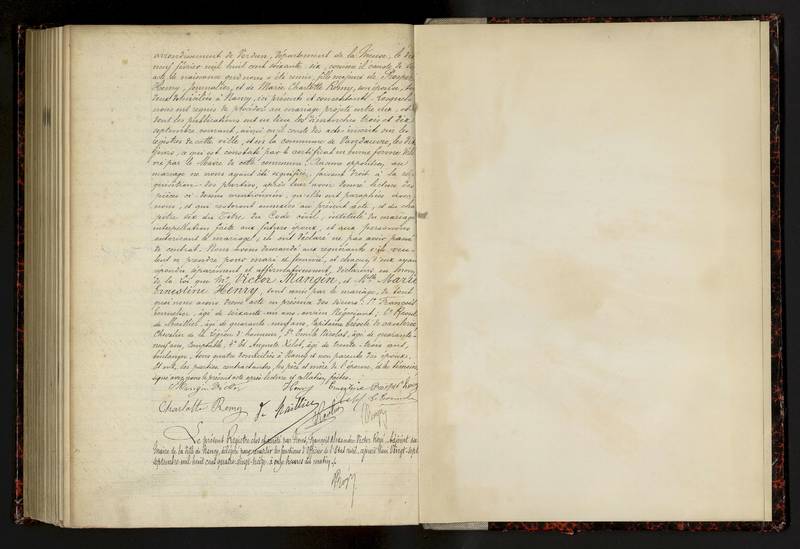 arrondissement de Verdun, département de la Meuse, le dix
neuf février mil huit cent soixante-six, comme il conste de son
acte de naissance qui nous a été remis, fille majeure de Gaspard
Henry, journalier, et de Marie Charlotte Romy, son épouse, tous
deux domiciliés à Nancy, ici présents et consentants. Lesquels
nous ont requis de procéder au mariage projeté entre eux, et
dont les publications ont eu lieu les dimanches trois et dix
septembre courant, ainsi qu'il conste des actes inscrits sur les
registres de cette ville, et en la commune de Vandœuvre, les dits
jours, ce qui est constaté par le certificat en bonne forme déli-
vré par le Maire de cette commune. Aucune opposition au
mariage ne nous ayant été signifiée, faisant droit à la ré-
quisition des parties, après leur avoir donné lecture des
pièces ci-dessus mentionnées, qu'elles ont paraphées avec
nous, et qui resteront annexées au présent acte, et du cha-
pitre six du Titre du Code civil, intitulé du mariage
interpellation faite aux futurs époux, et aux personnes
autorisant le mariage, ils ont déclaré ne pas avoir passé
de contrat. Nous avons demandé aux requérants s'ils veu-
lent se prendre pour mari et femme, et chacun d'eux ayant
répondu séparément et affirmativement, déclarons au nom
de la loi que Mr. Victor Mangin, et Melle Marie
Ernestine Henry, sont unis par le mariage, de tout
quoi nous avons dressé acte en présence des sieurs: 1° François
âgé de soixante-un ans, ancien Négociant, 2°
de Maillier, âgé de quarante-neuf ans, Capitaine
Chevalier de la Légion d'honneur, 3° Emile Nicolas, âgé de quarante-
neuf ans, Comptable, 4° et Auguste Xilot, âgé de trente-trois ans,
boulanger, tous quatre domiciliés à Nancy et non parents des époux.
Et ont, les parties contractantes, les père et mère de l'épouse, et les témoins
signé avec nous le présent acte après lecture et collation, faites.
Mangin Victor Henry Ernestine Gaspard Henry
Charlotte Romy de Maillier
Le présent Registre clos et arrêté par Nous, François Alexandre Victor adjoint au
Maire de la Ville de Nancy, délégué pour remplir les fonctions d'Officier de l'Etat civil, aujourd'hui Vingt-sept
septembre mil huit cent quatre-vingt- à onze heures du matin.